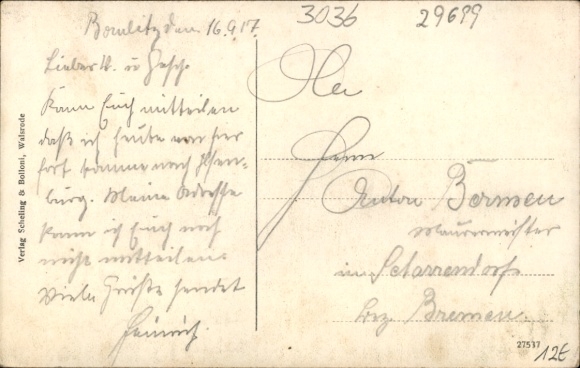 3036
29699
Bomlitz, den 16.9.17.
Lieber W. u Gesch.
Kann Euch mitteilen
daß ich heute von hier
fort komme nach
burg. Meine Adresse
kann ich Euch noch
nicht mitteilen
Viele Grüße sendet
Heinrich.
An
Herrn
Anton Bormen
Maurermeister
in Scharrendorf
Bez Bremen.
Verlag Scheling & Bolloni, Walsrode
27537
12E